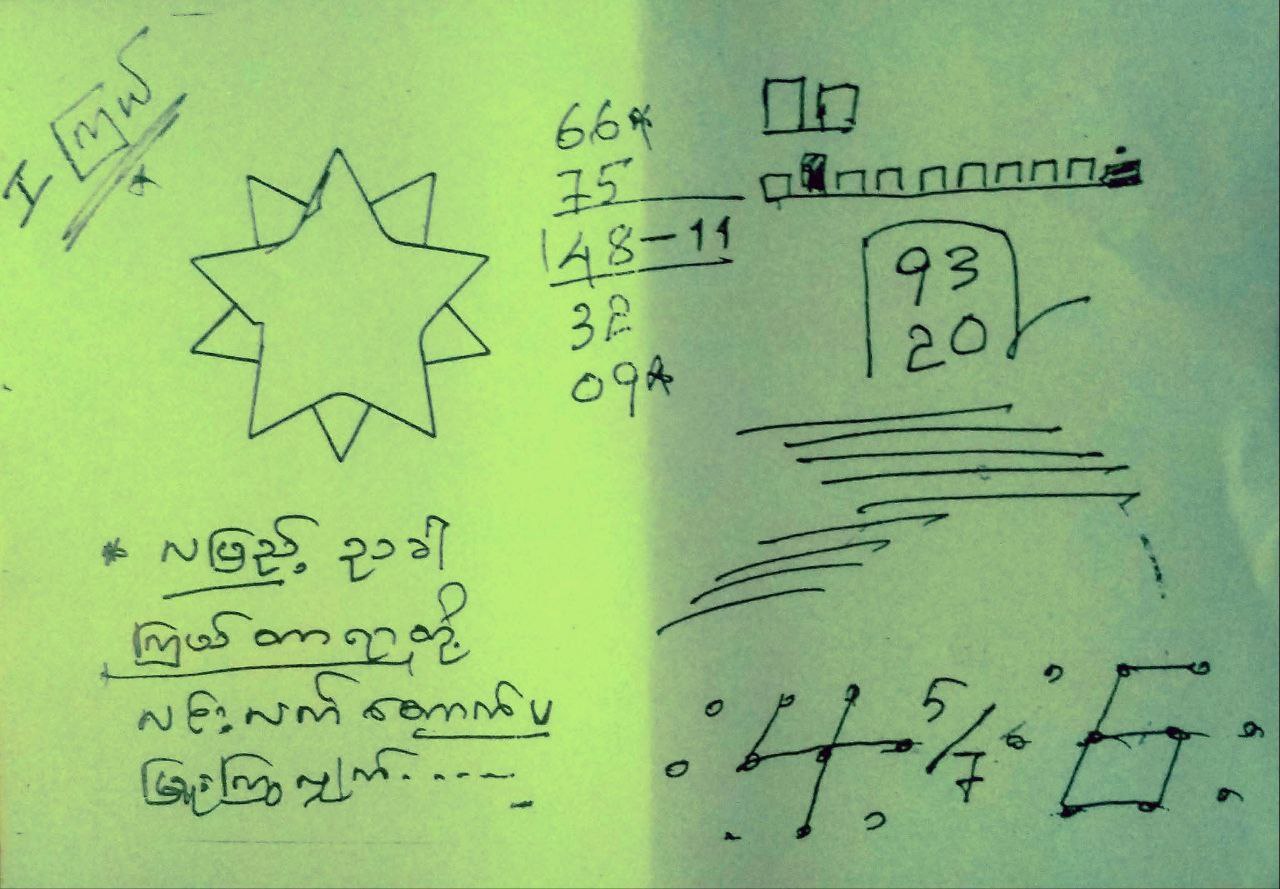 I ကြယ်
66*
75
148-11
32
09*
93
20
* လပြည့် ဥဒါ
ကြယ် တာရာ တို့
လင်းလက် တောက်ပ
ဖြူးကြွ လျှက်-----
5/7